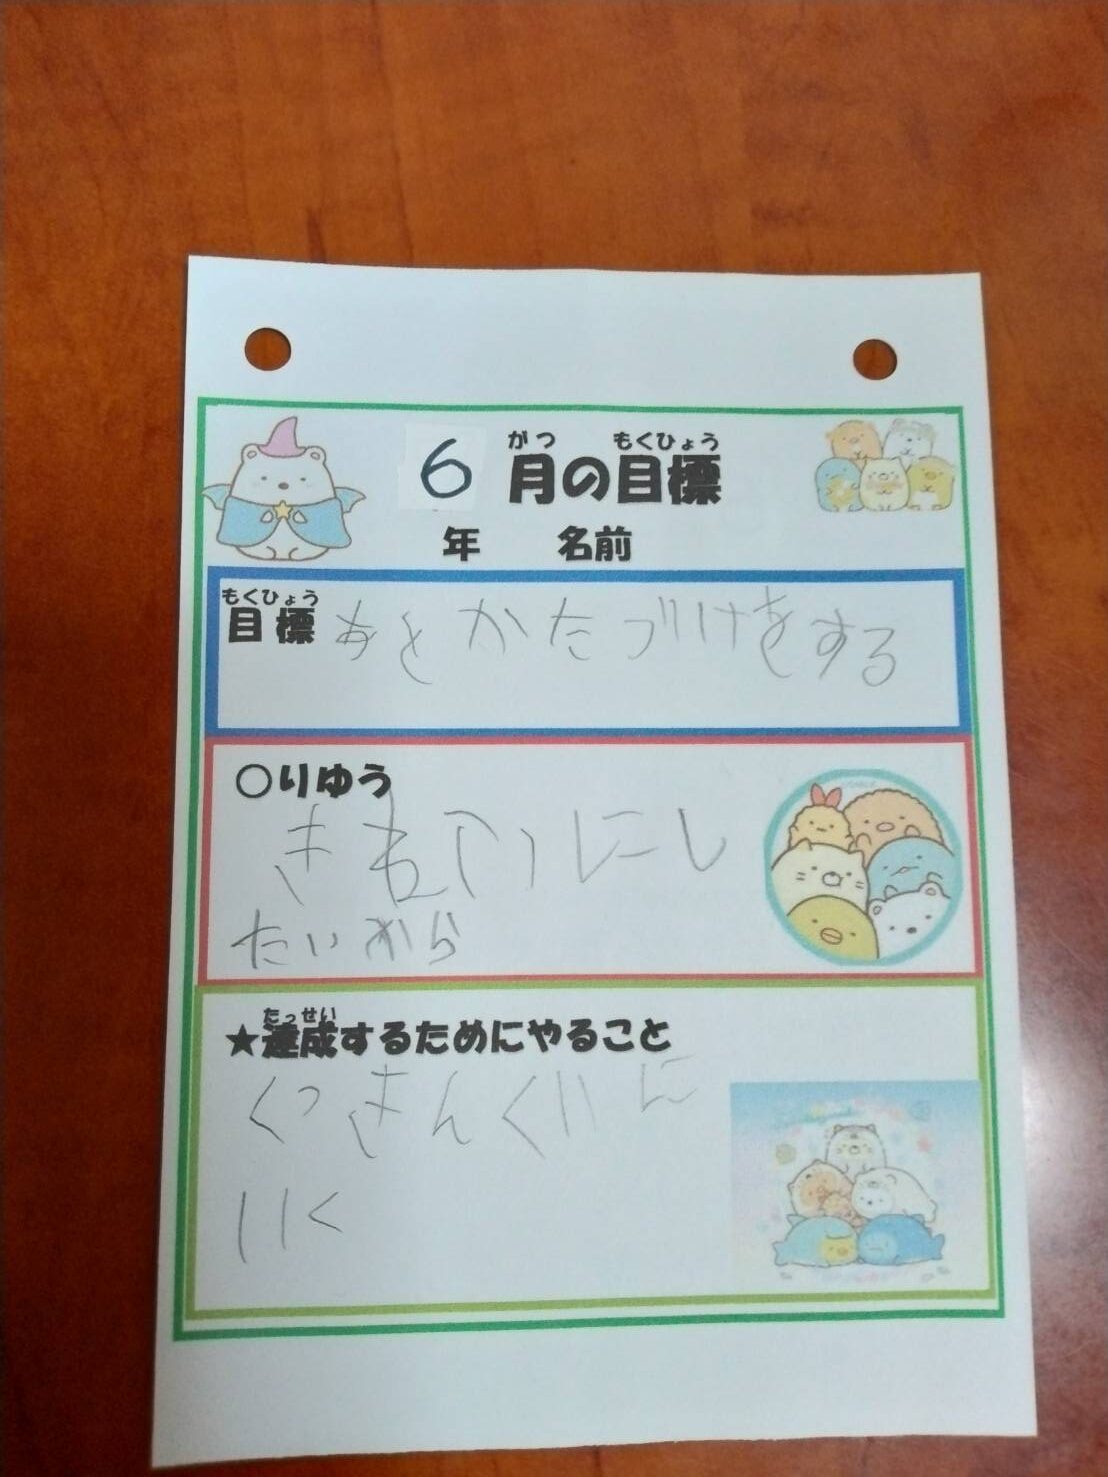 6 月の目標
がつ もくひょう
年 名前
もくひょう
目標 あとかたづけをする
○りゆう
きれいにし
たいから
たっせい
★達成するためにやること
くっさんくいに
いく